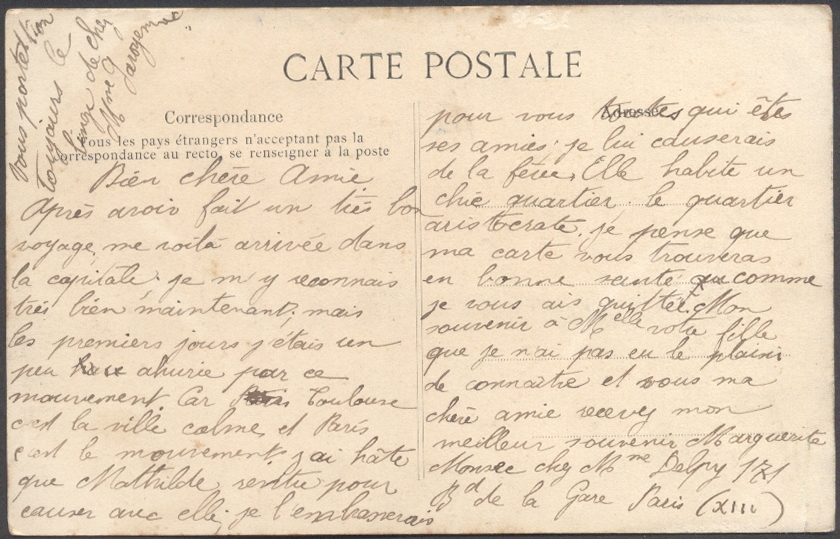 CARTE POSTALE
Correspondance
Tous les pays étrangers n'acceptant pas la
correspondance au recto, se renseigner à la poste
Adresse
Vous portez
toujours le
linge de chez
Mme
Bien chère Amie
Après avoir fait un très bon
voyage, me voilà arrivée dans
la capitale. je m'y reconnais
très bien maintenant. mais
les premiers jours j'étais un
peu ahurie par ce
mouvement Car Toulouse
c'est la ville calme, et Paris
c'est le mouvement, j'ai hâte
que Mathilde, rentre pour
causer avec elle, je l'embrasserais
pour vous toutes qui êtes
ses amies. je lui causerais
de la féeie, Elle habite un
chic quartier. le quartier
aristocrate. je pense que
ma carte vous trouveras
en bonne santé comme
je vous ais quittée, Mon
souvenir à Melle votre fille
que je n'ai pas eu le plaisir
de connaître et vous ma
chère amie recevez mon
meilleur souvenir Marguerite
Monsec chez Mme Delpy 171
Bd de la Gare Paris (XIII)